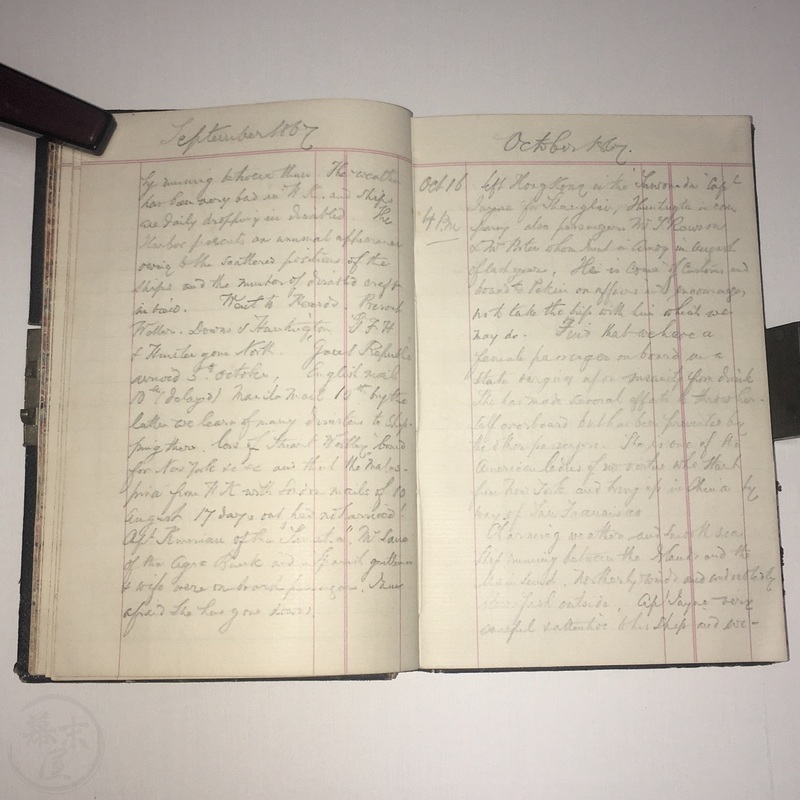 September 1867
by running between them The weather
has been very bad in H.K. and ships
are daily dropping in disabled The
Harbor presents an unusual appearance
owing to the scattered positions of the
ships and the number of disabled craft
in view. Went to Heards.
& Hunter gone North.
arrived 3rd October. English mail
10th (delayed) Manila Mail 10th by the
latter we learn of many disasters to ship-
ping there. loss of Stuart Wortley bound
for New York and that the
from H.K. with mails of 10
August 17 days out had not arrived!
of the Agra Bank and a Spanish gentleman
& wife were on board passengers. I am
afraid she has gone down.
October 1867.
Oct 16
4 P.M
left Hong Kong in the Capt
Jayne for Shanghai,
also passengers Mr Rawson
& Mr whom I met in Amoy in August
of last year. He is of Customs and
bound to Pekin on affairs and encourages
me to take the trip with him which we
may do. Find that we have a
female passenger on board in a
state verging upon insanity from drink
She has made several efforts to throw her-
self overboard but has been prevented by
the other passengers. She is one of the
American ladies of no virtue who start
from New York and bring up in China by
way of San Francisco
Charming weather and smooth sea
Ship running between the Islands and the
Main land. Northerly winds and
outside. Capt Jayne very
careful & attentive to his Ship and we-
幕末屋